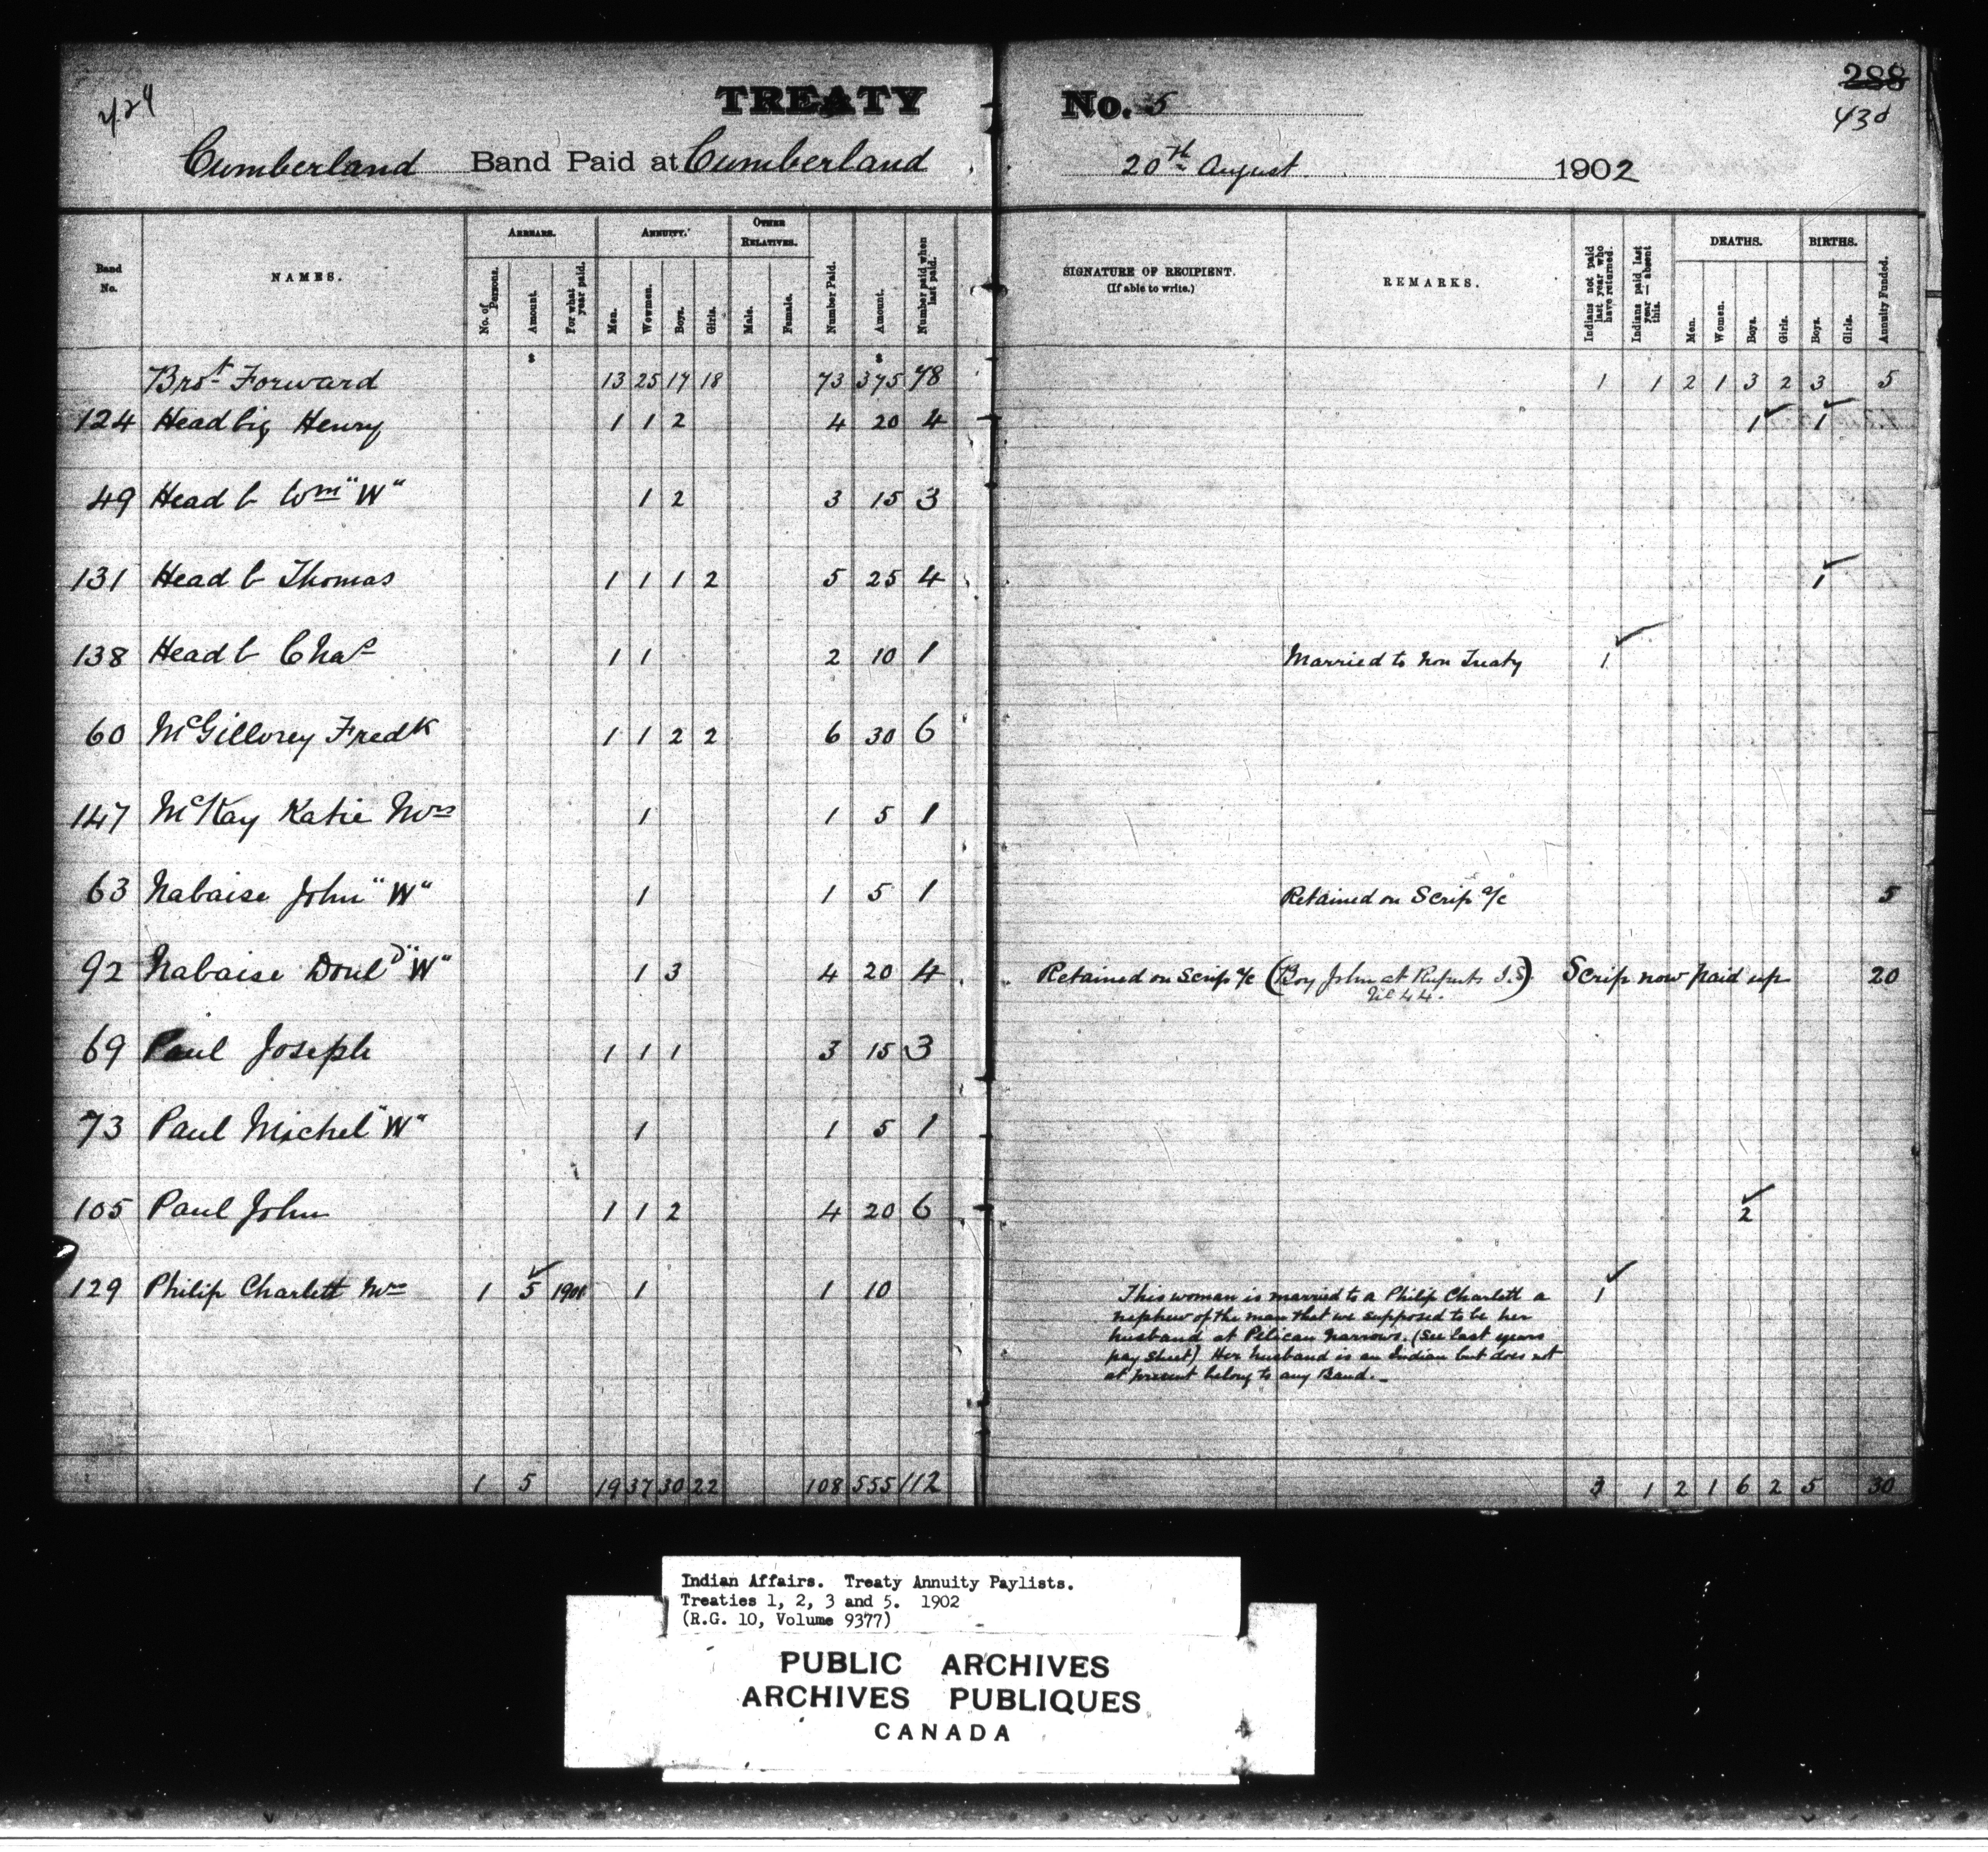 424
TREATY No. 5
288
430
Cumberland Band Paid at Cumberland 20th August 1902
ARREARS. ANNUITY. OTHER RELATIVES. DEATHS. BIRTHS.
Band No. NAMES. No. of Persons. Amount. For what year paid. Men. Women. Boys. Girls. Male. Female. Number Paid. Amount. Number paid when last paid. SIGNATURE OF RECIPIENT. (If able to write.) REMARKS. Indians not paid last year who have returned. Indians paid last year — absent this. Men. Women. Boys. Girls. Boys. Girls. Annuity Funded.
$ $
Brot Forward 13 25 17 18 73 375 78 1 1 2 1 3 2 3 5
124 Head big Henry 1 1 2 4 20 4 1 1
49 Head b Wm "W" 1 2 3 15 3
131 Head b Thomas 1 1 1 2 5 25 4 1
138 Head b Chas 1 1 2 10 1 Married to Non Treaty 1
60 McGillorey Fredk 1 1 2 2 6 30 6
147 McKay Katie Mrs 1 1 5 1
63 Nabaise John "W" 1 1 5 1 Retained on Scrip a/c 5
92 Nabaise Donld "W" 1 3 4 20 4 Retained on Scrip a/c (Boy John at Ruperts I.S.) Scrip now paid up 20
No 44.
69 Paul Joseph 1 1 1 3 15 3
73 Paul Michel "W" 1 1 5 1
105 Paul John 1 1 2 4 20 6 2
129 Philip Charlett Mrs 1 5 1901 1 1 10 This woman is married to a Philip Charlett a 1
nephew of the man that we supposed to be her
husband at Pelican Narrows. (See last years
pay sheet) Her husband is an Indian but does not
at present belong to any Band.
1 5 19 37 30 22 108 555 112 3 1 2 1 6 2 5 30
Indian Affairs. Treaty Annuity Paylists.
Treaties 1, 2, 3 and 5. 1902
(R.G. 10, Volume 9377)
PUBLIC ARCHIVES
ARCHIVES PUBLIQUES
CANADA